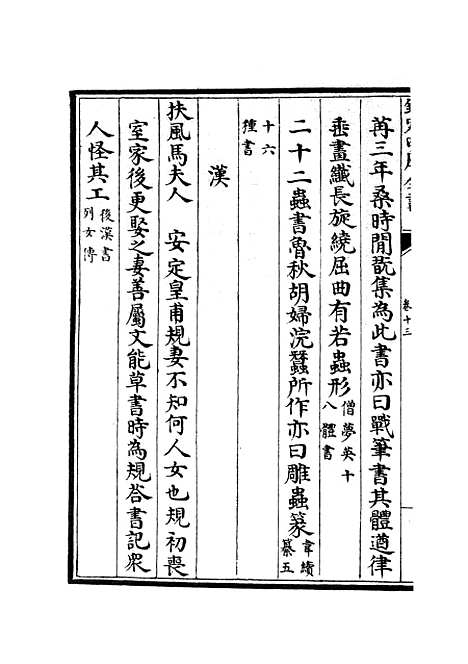 卷十三
苒三年桑時閒翫集為此書亦曰戰筆書其體遒律
垂畫纖長旋繞屈曲有若蟲形僧夢英十八體書
二十二蟲書魯秋胡婦浣蠶所作亦曰雕蟲篆韋續纂五
十六種書
漢
扶風馬夫人　安定皇甫規妻不知何人女也規初喪
室家後更娶之妻善屬文能草書時為規荅書記眾
人怪其工後漢書列女傳